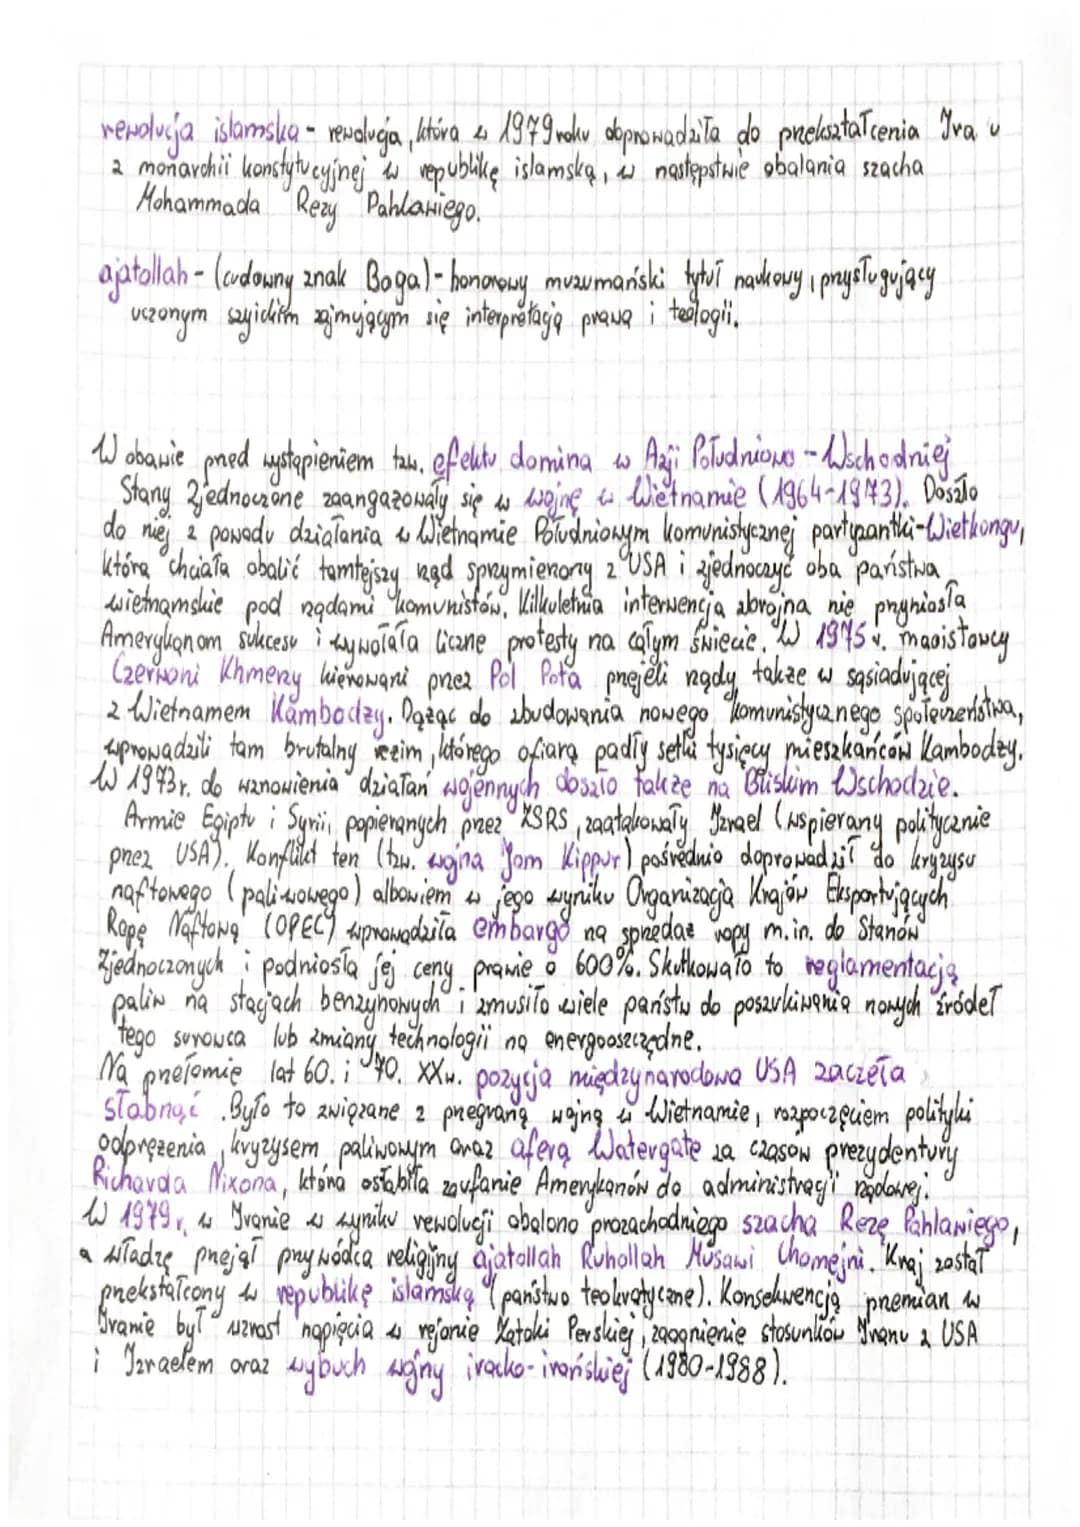 rewolucja islamska - rewolucja, która w 1979 roku doprowadziła do przekształcenia Iranu
z monarchii konstytucyjnej w republikę islamską, w następstwie obalania szacha
Mohammada Rezy Pahlawiego.
ajatollah - (cudowny znak Boga) - honorowy muzumański tytuł naukowy, przysługujący
uczonym szyickim zajmującym się interpretacją prawa i teologii.
W obawie przed wystąpieniem tzw. efektu domina w Azji Południowo - Wschodniej
Stany Zjednoczone zaangażowały się w wojnę w Wietnamie (1964-1973). Doszło
do niej z powodu działania w Wietnamie Południowym komunistycznej partyzantki-Wietkongu,
która chciała obalić tamtejszy rząd sprzymierzony z USA i zjednoczyć oba państwa
wietnamskie pod rządami komunistów. Kilkuletnia interwencja zbrojna nie przyniosła
Amerykanom sukcesu i wywołała liczne protesty na całym świecie. W 1975 r. maoistowcy
Czerwoni Khmerzy kierowani przez Pol Pota przejęli rządy także w sąsiadującej
z Wietnamem Kambodży. Dążąc do zbudowania nowego komunistycznego społeczeństwa,
wprowadzili tam brutalny reżim, którego ofiarą padły setki tysięcy mieszkańców Kambodży.
W 1973r. do wznowienia działań wojennych doszło także na Bliskim Wschodzie.
Armie Egiptu i Syrii, popieranych przez ZSRS, zaatakowały Izrael (wspierany politycznie
przez USA). Konflikt ten (tzw. wojna Jom Kippur) pośrednio doprowadził do kryzysu
naftowego (paliwowego) albowiem w jego wyniku Organizacja Krajów Eksportujących
Ropę Naftową (OPEC) wprowadziła embargo na sprzedaż ropy m.in. do Stanów
Zjednoczonych i podniosła jej ceny prawie o 600%. Skutkowało to reglamentacją
paliw na stacjach benzynowych i zmusiło wiele państw do poszukiwania nowych źródeł
tego surowca lub zmiany technologii na energooszczędne.
Na przełomie lat 60. i 70. XXw. pozycja międzynarodowa USA zaczęła
słabnąć. Było to związane z przegraną wojną w Wietnamie, rozpoczęciem polityki
odprężenia, kryzysem paliwowym oraz aferą Watergate za czasów prezydentury
Richarda Nixona, która osłabiła zaufanie Amerykanów do administracji rządowej.
W 1979r. w Iranie w wyniku rewolucji obalono prozachodniego szacha Rezę Pahlawiego,
a władzę przejął przywódca religijny ajatollah Ruhollah Musawi Chomejni. Kraj został
przekształcony w republikę islamską (państwo teokratyczne). Konsekwencją przemian w
Iranie był wzrost napięcia w rejonie Zatoki Perskiej, zaognienie stosunków Iranu z USA
i Izraelem oraz wybuch wojny iracko-irańskiej (1980-1988).